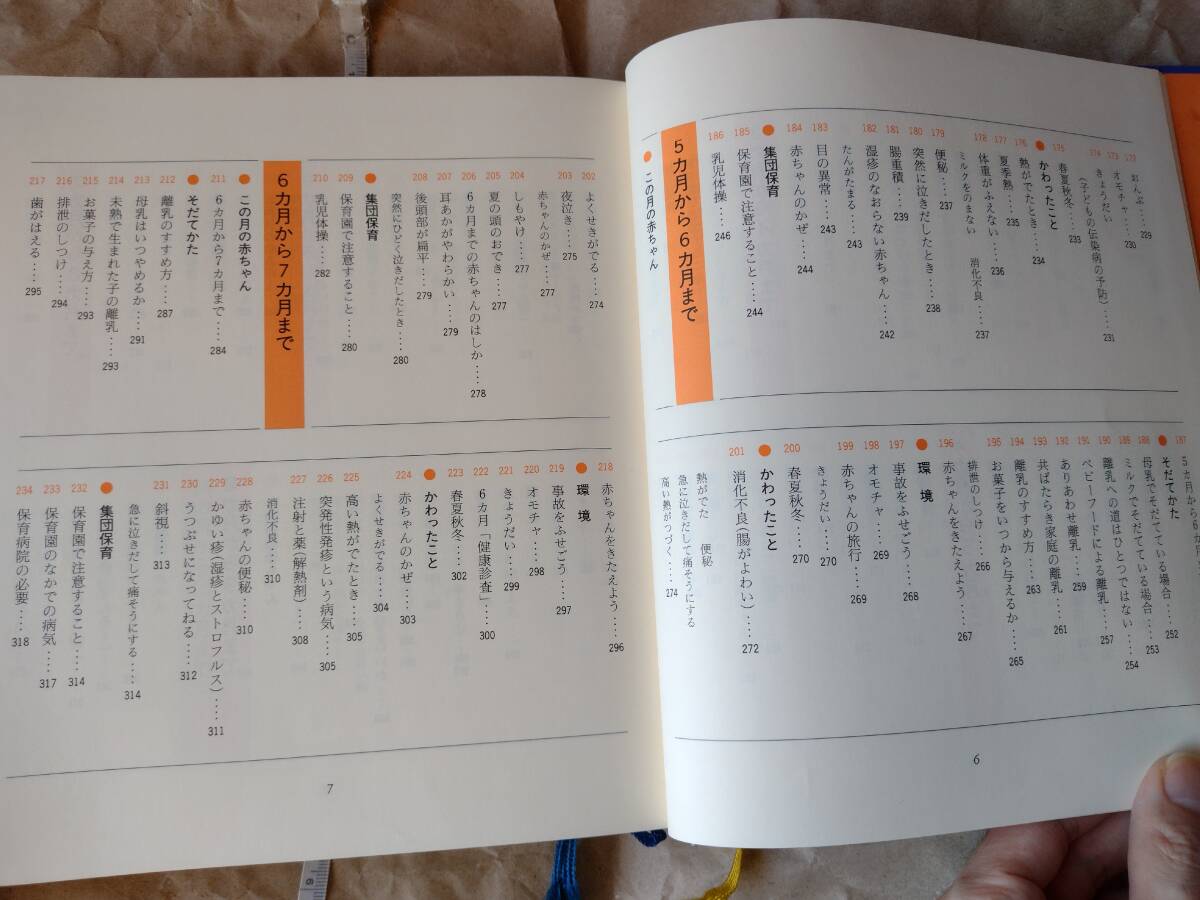 172 おんぶ‥‥229
173 オモチャ‥‥230
174 きょうだい‥‥231
(子どもの伝染病の予防)
175 春夏秋冬‥‥233
● かわったこと
176 熱がでたとき‥‥234
177 夏季熱‥‥235
178 体重がふえない‥‥236
ミルクをのまない 消化不良‥‥237
179 便秘‥‥237
180 突然に泣きだしたとき‥‥238
181 腸重積‥‥239
182 湿疹のなおらない赤ちゃん‥‥242
たんがたまる‥‥243
183 目の異常‥‥243
184 赤ちゃんのかぜ‥‥244
● 集団保育
185 保育園で注意すること‥‥244
186 乳児体操‥‥246
5カ月から6カ月まで
● この月の赤ちゃん
187 5カ月から
● そだてかた
188 母乳でそだてている場合‥‥252
189 ミルクでそだてている場合‥‥253
190 離乳への道はひとつではない‥‥254
191 ベビーフードによる離乳‥‥257
192 ありあわせ離乳‥‥259
193 共ばたらき家庭の離乳‥‥261
194 離乳のすすめ方‥‥263
195 お菓子をいつから与えるか‥‥265
排泄のしつけ‥‥266
196 赤ちゃんをきたえよう‥‥267
● 環境
197 事故をふせごう‥‥268
198 オモチャ‥‥269
199 赤ちゃんの旅行‥‥269
きょうだい‥‥270
200 春夏秋冬‥‥270
● かわったこと
201 消化不良(腸がよわい)‥‥272
熱がでた 便秘
急に泣きだして痛そうにする
高い熱がつづく‥‥274
6
202 よくせきがでる‥‥274
203 夜泣き‥‥275
赤ちゃんのかぜ‥‥277
204 しもやけ‥‥277
205 夏の頭のおでき‥‥277
206 6カ月までの赤ちゃんのはしか‥‥278
207 耳あかがやわらかい‥‥279
208 後頭部が扁平‥‥279
突然にひどく泣きだしたとき‥‥280
● 集団保育
209 保育園で注意すること‥‥280
210 乳児体操‥‥282
6カ月から7カ月まで
● この月の赤ちゃん
211 6カ月から7カ月まで‥‥284
● そだてかた
212 離乳のすすめ方‥‥287
213 母乳はいつやめるか‥‥291
214 未熟で生まれた子の離乳‥‥293
215 お菓子の与え方‥‥293
216 排泄のしつけ‥‥294
217 歯がはえる‥‥295
218 赤ちゃんをきたえよう‥‥296
● 環境
219 事故をふせごう‥‥297
220 オモチャ‥‥298
221 きょうだい‥‥299
222 6カ月「健康診査」‥‥300
223 春夏秋冬‥‥302
● かわったこと
224 赤ちゃんのかぜ‥‥303
よくせきがでる‥‥304
225 高い熱がでたとき‥‥305
226 突発性発疹という病気‥‥305
227 注射と薬(解熱剤)‥‥308
消化不良‥‥310
228 赤ちゃんの便秘‥‥310
229 かゆい疹(湿疹とストロフルス)‥‥311
230 うつぶせになってねる‥‥312
231 斜視‥‥313
急に泣きだして痛そうにする‥‥314
● 集団保育
232 保育園で注意すること‥‥314
233 保育園のなかでの病気‥‥317
234 保育病院の必要‥‥318
7